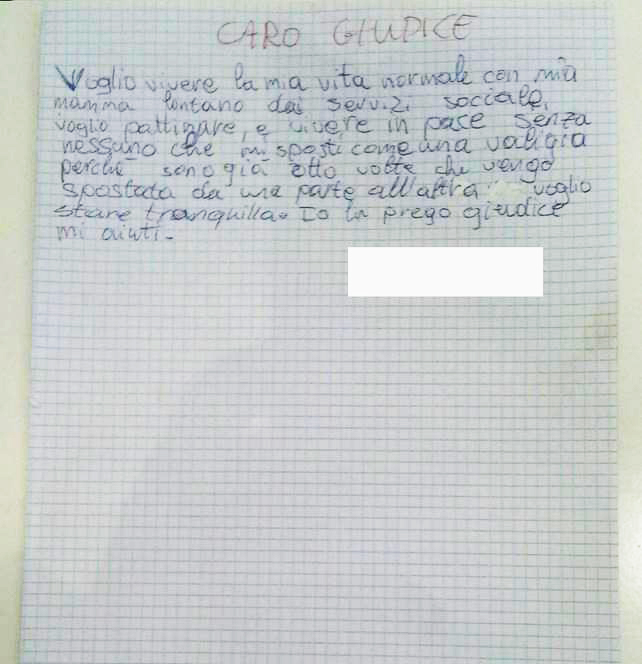 CARO GIUDICE
Voglio vivere la mia vita normale con mia
mamma lontano dai servizi sociale,
voglio pattinare, e vivere in pace senza
nessuno che mi sposti come una valigia
perché sono già otto volte che vengo
spostata da una parte all'altra voglio
stare tranquilla. Io la prego giudice
mi aiuti.